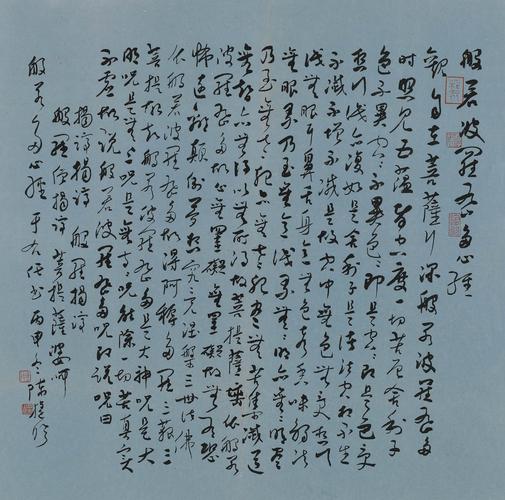 般若波羅蜜多心經
觀自在菩薩行深般若波羅蜜多
時照見五蘊皆空度一切苦厄舍利子
色不異空空不異色色即是空空即是色受
想行識亦復如是舍利子是諸法空相不生
不滅不增不減是故空中無色無受想行
識無眼耳鼻舌身意無色聲香味觸法
無眼界乃至無意識界無無明亦無無明盡
乃至無老死亦無老死盡無苦集滅道
無智亦無得以無所得故菩提薩埵依般若
波羅蜜多故心無罣礙無罣礙故無有恐
怖遠離顛倒夢想究竟涅槃三世諸佛
依般若波羅蜜多故得阿耨多羅三藐三
菩提故知般若波羅蜜多是大神咒是大
明咒是無上咒是無等等咒能除一切苦真實
不虛故說般若波羅蜜多咒即說咒曰
揭諦揭諦 般羅揭諦
般羅僧揭諦 菩提薩婆訶
般若多心經 于右任書 丙申冬